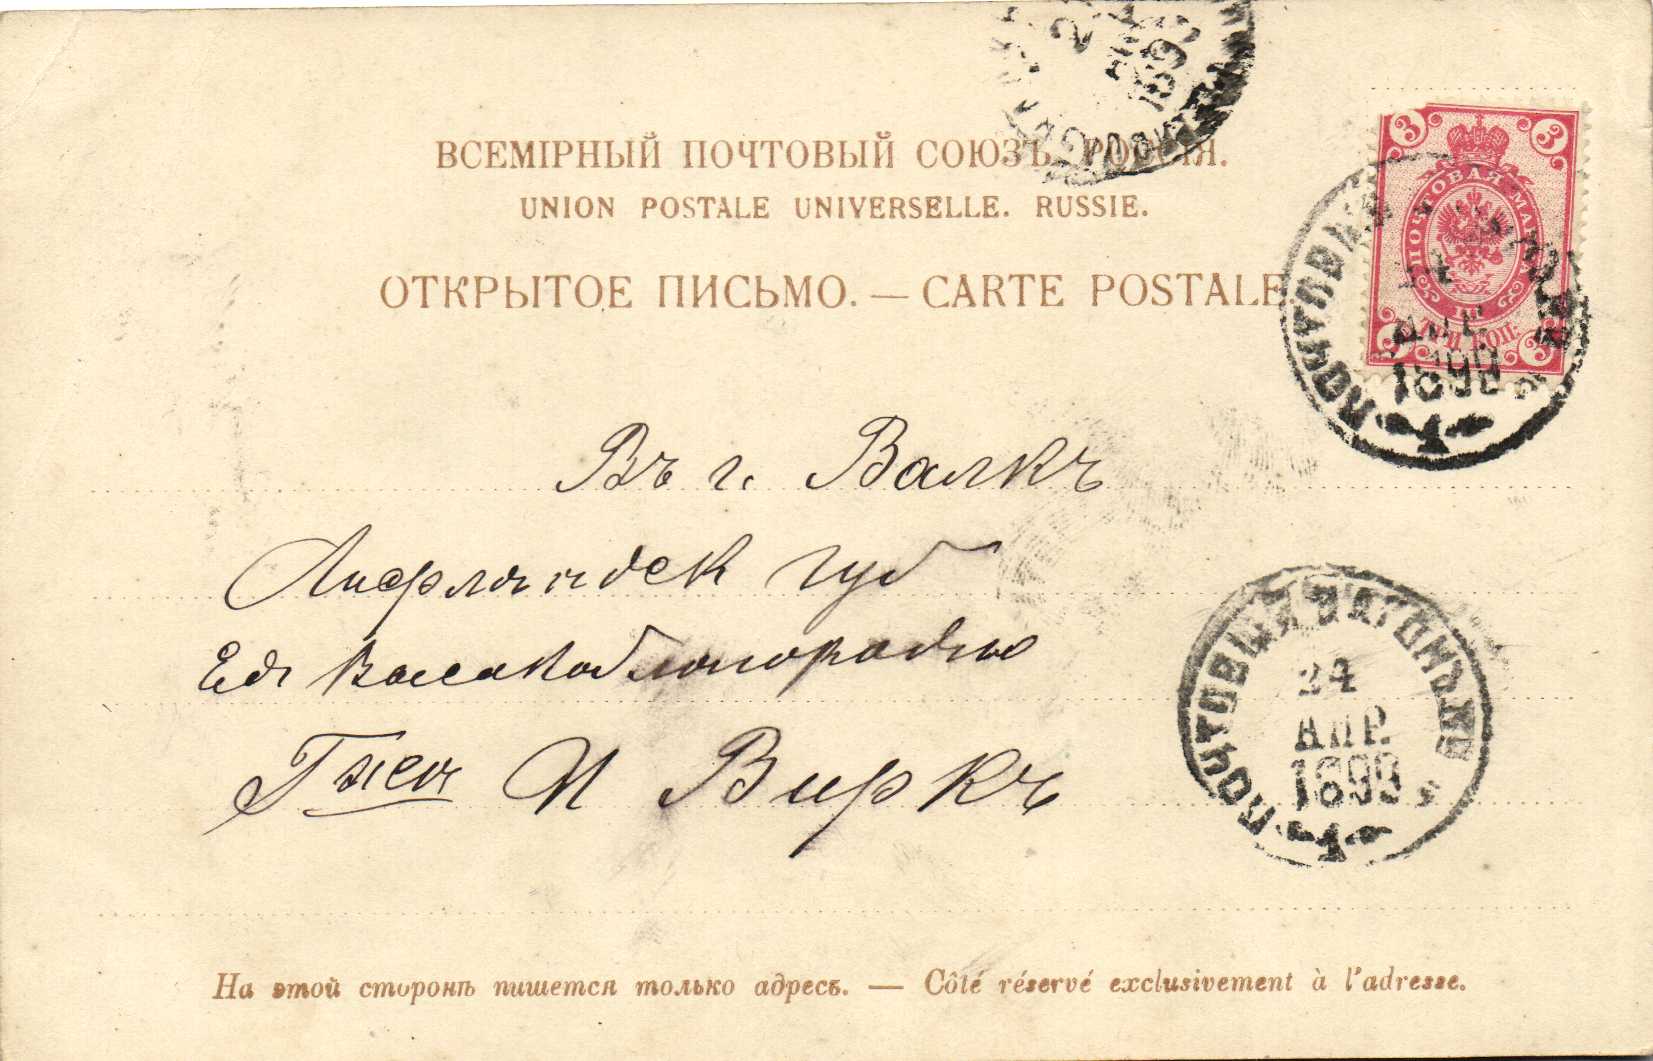 ВСЕМІРНЫЙ ПОЧТОВЫЙ СОЮЗЪ. РОССІЯ.
UNION POSTALE UNIVERSELLE. RUSSIE.
ОТКРЫТОЕ ПИСЬМО. — CARTE POSTALE
3 3
ПОЧТОВАЯ МАРКА
3 ТРИ КОП. 3
ПОЧТОВЫЙ
АПР
189
Въ г. Валкъ
Лифляндск губ
Его Высокоблагородію
И Виркъ
ПОЧТОВЫЙ ВАГОНЪ
24
АПР.
1899
На этой сторонѣ пишется только адресъ. — Côté réservé exclusivement à l'adresse.